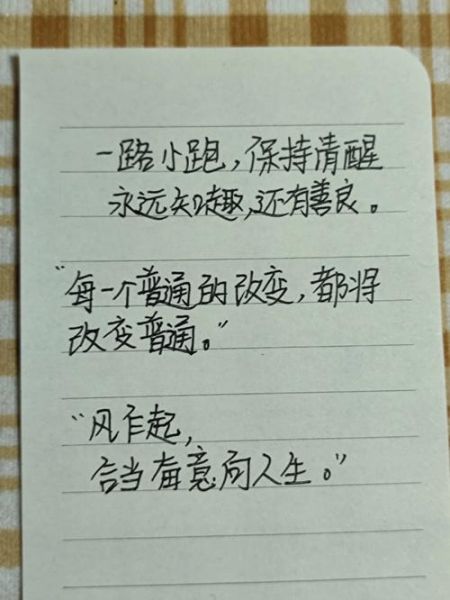 一路小跑，保持清醒
永远知趣，还有善良。
“每一个普通的改变，都将
改变普通。”
“风乍起，
合当奋意向人生。”